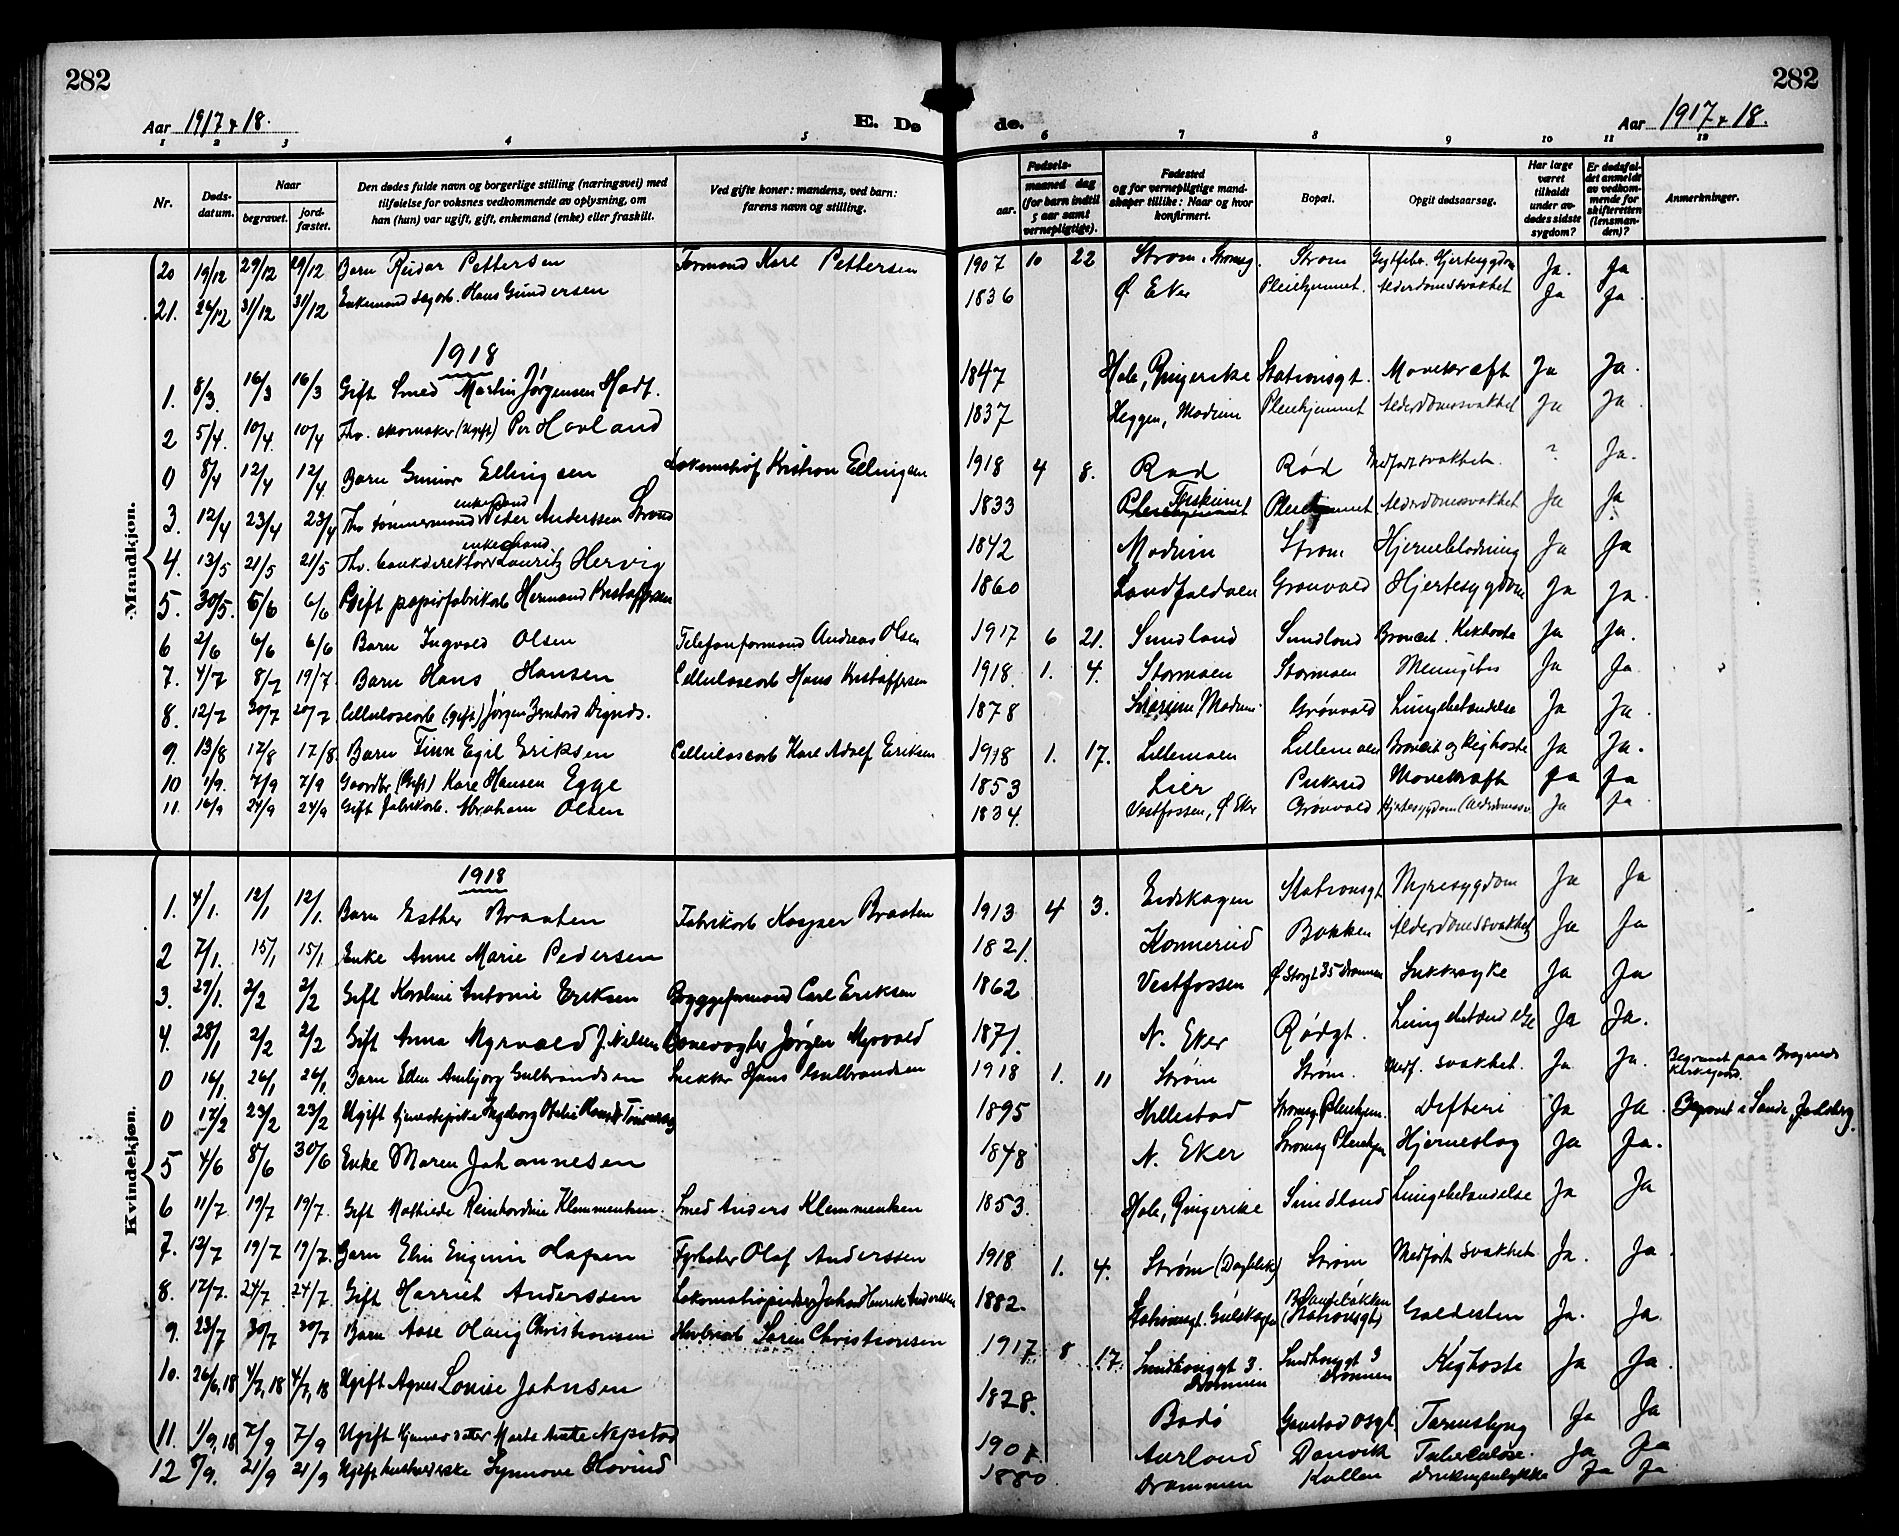 282
282
Aar 1917 & 18.
E. Dø
de.
Aar 1917 & 18.
1 2 3 4 5 6 7 8 9 10 11 12
Nr.
Døds-datum.
Naar
begravet.
jord-fæstet.
Den dødes fulde navn og borgerlige stilling (næringsvei) med
tilføielse for voksnes vedkommende av oplysning, om
han (hun) var ugift, gift, enkemand (enke) eller fraskilt.
Ved gifte koner: mandens, ved barn:
farens navn og stilling.
Fødsels-
aar.
maaned dag
(for barn indtil
5 aar samt
vernepligtige).
Fødested
og for vernepligtige mand-
skaper tillike: Naar og hvor
konfirmert.
Bopæl.
Opgit dødsaarsag.
Har læge
været
tilkaldt
under av-
dødes sidste
sygdom?
Er dødsfal-
det anmeldt
av vedkom-
mende for
skifteretten
(lensman-
den)?
Anmerkninger.
Mandkjøn.
20 19/12 29/12 29/12 Barn Reidar Pettersen Formand Karl Pettersen 1907 10 22 Strøm, Strømsg. Strøm Hjertesygdom Ja. Ja
21. 24/12 31/12 31/12 Enkemand Hans Gundersen 1836 Ø Eker Pleiehjemmet. Alderdomssvakhet Ja Ja
1918
1. 8/3. 16/3 16/3 Gift Smed Martin Jørgensen 1847 Hole, Ringerike Stationsgt. Marekræft Ja Ja.
2 5/4. 10/4. 10/4 Fhv. skomaker (ugift) Per Hovland 1837 Heggen, Modum Pleiehjemmet Alderdomssvakhet Ja Ja.
0 8/4 12/4 12/4. Barn Gunnar Ellingsen Kristian Ellingsen 1918 4 8. Rød Rød Medfødt svakhet. ? Ja.
3. 12/4 23/4 23/4 Fhv tømmermand enkemand Peder Anderssen Strand 1833 Pleiehjemmet Alderdomssvakhet Ja Ja
4. 13/5 21/5 21/5 Fhv. bankdirektør enkemand Lauritz Hervig 1842 Modum Strøm Hjerneblødning Ja Ja
5. 30/5. 6/6 6/6 Gift papirfabrikarb Herman Kristoffersen 1860 Landfaldøen Grønvold Hjertesygdom Ja Ja.
6 2/6 6/6 6/6 Barn Ingvald Olsen Telefonformand Andreas Olsen 1917 6 21. Sundland Sundland Broncit. Kikhoste Ja Ja.
7. 4/7 8/7 19/7. Barn Hans Hansen Cellulosearb Hans Kristoffersen 1918. 1. 4. Stormoen Stormoen Meningitis Ja Ja.
8. 12/7 20/7 20/7 Cellulosearb (gift) Jørgen Bernhard 1878 Modum Grønvold Lungebetændelse Ja Ja.
9. 13/8 17/8 17/8. Barn Finn Egil Eriksen Cellulosearb Karl Adolf Eriksen 1918 1. 17. Lillemoen Lillemoen Broncit og Kighoste Ja Ja.
10 1/9. 7/9 7/9 Gaardbr (gift) Karl Hansen Egge 1853 Lier Mavekræft Ja Ja
11. 16/9 24/9 24/9 Gift fabrikarb. Abraham Olsen 1834. Vestfossen, Ø Eker Grønvold Hjertesygdom Ja Ja
Kvindekjøn.
1918
1. 4/1. 12/1 12/1. Barn Esther Braaten Fabrikarb Kasper Braaten 1913 4 3. Eidskogen Stationsgt Nyresygdom Ja Ja
2 7/1. 15/1 15/1 Enke Anne Marie Pedersen 1821. Konnerud Bakken Alderdomssvakhet Ja Ja
3. 29/1. 2/2 2/2 Gift Karoline Antonie Eriksen Byggeformand Carl Eriksen 1862 Vestfossen Ø Storgt 35 Drammen Sukkersyke Ja Ja
4. 28/1 2/2 2/2 Gift Anna Myrvold f. Nilsen Banevogter Jørgen Myrvold 1871. N. Eker Rødgt. Lungebetændelse Ja Ja.
0 16/1 26/1 26/1 Barn Ellen Aubjørg Gulbrandsen Snekker Hans Gulbrandsen 1918 1. 11 Strøm Strøm. Medf. svakhet. Ja Ja. Begravet paa Bragernes Kirkegaard.
0 17/2 23/2 23/2 Ugift tjenestepike Ingeborg 1895 Hillestad Strømsg Pleiehjem. Difteri Ja Ja Begravet i Sande, Jarlsberg.
5 4/6 8/6 30/6 Enke Maren Johannesen 1848 N. Eker Strømsg Pleiehjem Hjerneslag Ja Ja.
6 11/7 19/7 19/7. Gift Mathilde Reinhardine Klemmentsen. Smed Anders Klemmentsen 1853. Hole, Ringerike Sundland Lungebetændelse Ja Ja
7. 12/7 19/7 19/7. Barn Elin Olaf Anderssen 1918 1. 4. Strøm Strøm Medfødt svakhet Ja. Ja.
8. 17/7. 24/7 24/7. Gift Harriet Anderssen Johan Henrik Anderssen 1882. Stationsgt. Gulskogen (Stationsgt) Galdesten Ja. Ja.
9. 23/7 30/7 30/7 Barn Aase Haug Christiansen Søren Christiansen 1917 8 17. 3. Drammen 3 Drammen Kighoste Ja Ja.
10. 26/6,18 4/7,18 4/7,18 Ugift Agnes Lovise Johnsen 1828. Bodø Tarmslyng Ja Ja
11. 1/9,18 7/9 7/9 Ugift Marta 1901 Aurland Danvik Tuberkulose. Ja Ja
12 8/9. 21/9 21/9 Ugift Synnøve Hovind 1880 Drammen Kallen Drukningsulykke Ja Ja